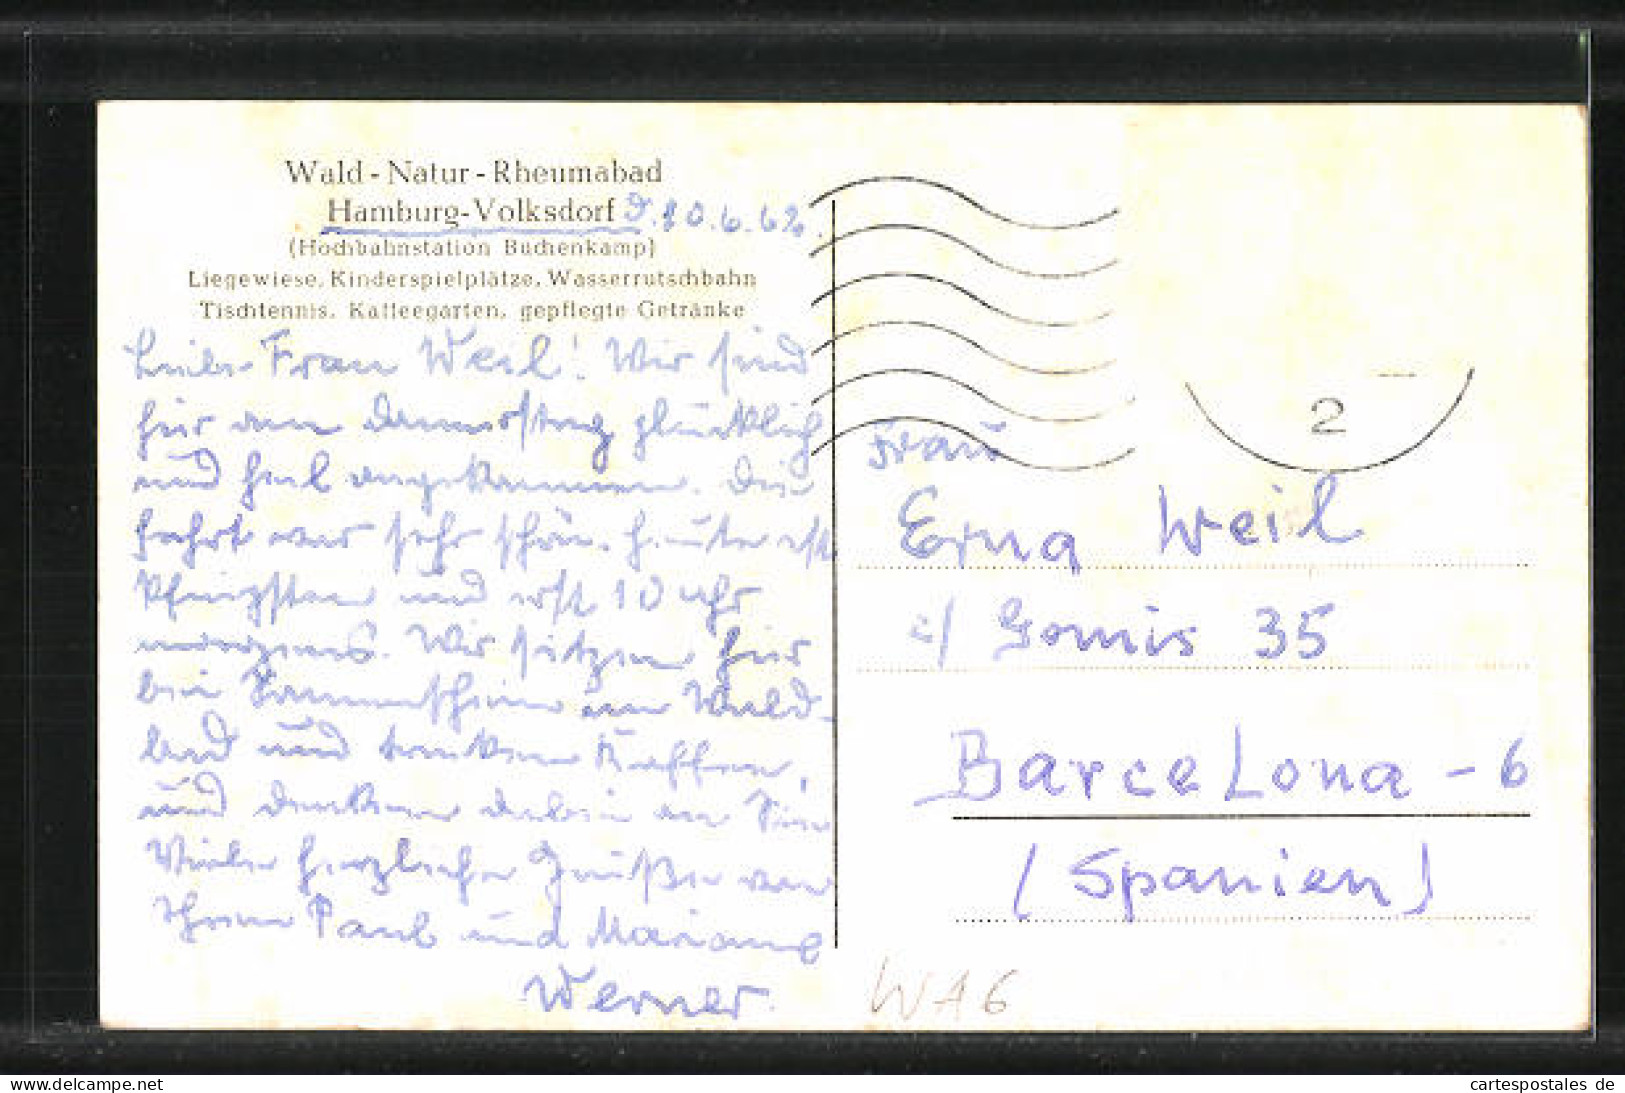 Wald - Natur - Rheumabad
Hamburg-Volksdorf d. 10.6.62.
(Hochbahnstation Buchenkamp)
Liegewiese, Kinderspielplätze, Wasserrutschbahn
Tischtennis, Kaffeegarten, gepflegte Getränke
Liebe Frau Weil! Wir sind
hier am Donnerstag glücklich
und heil angekommen. Die
Fahrt war sehr schön. Heute ist
Pfingsten und erst 10 Uhr
morgens. Wir sitzen hier
bei Sonnenschein im Wald-
bad und trinken Kaffee,
und denken dabei an Sie
Viele herzliche Grüße von
Ihren Paul und Marianne
Werner.
2
Frau
Erna Weil
c/ Gomis 35
Barcelona - 6
(Spanien)
WA6
cartespostales.de